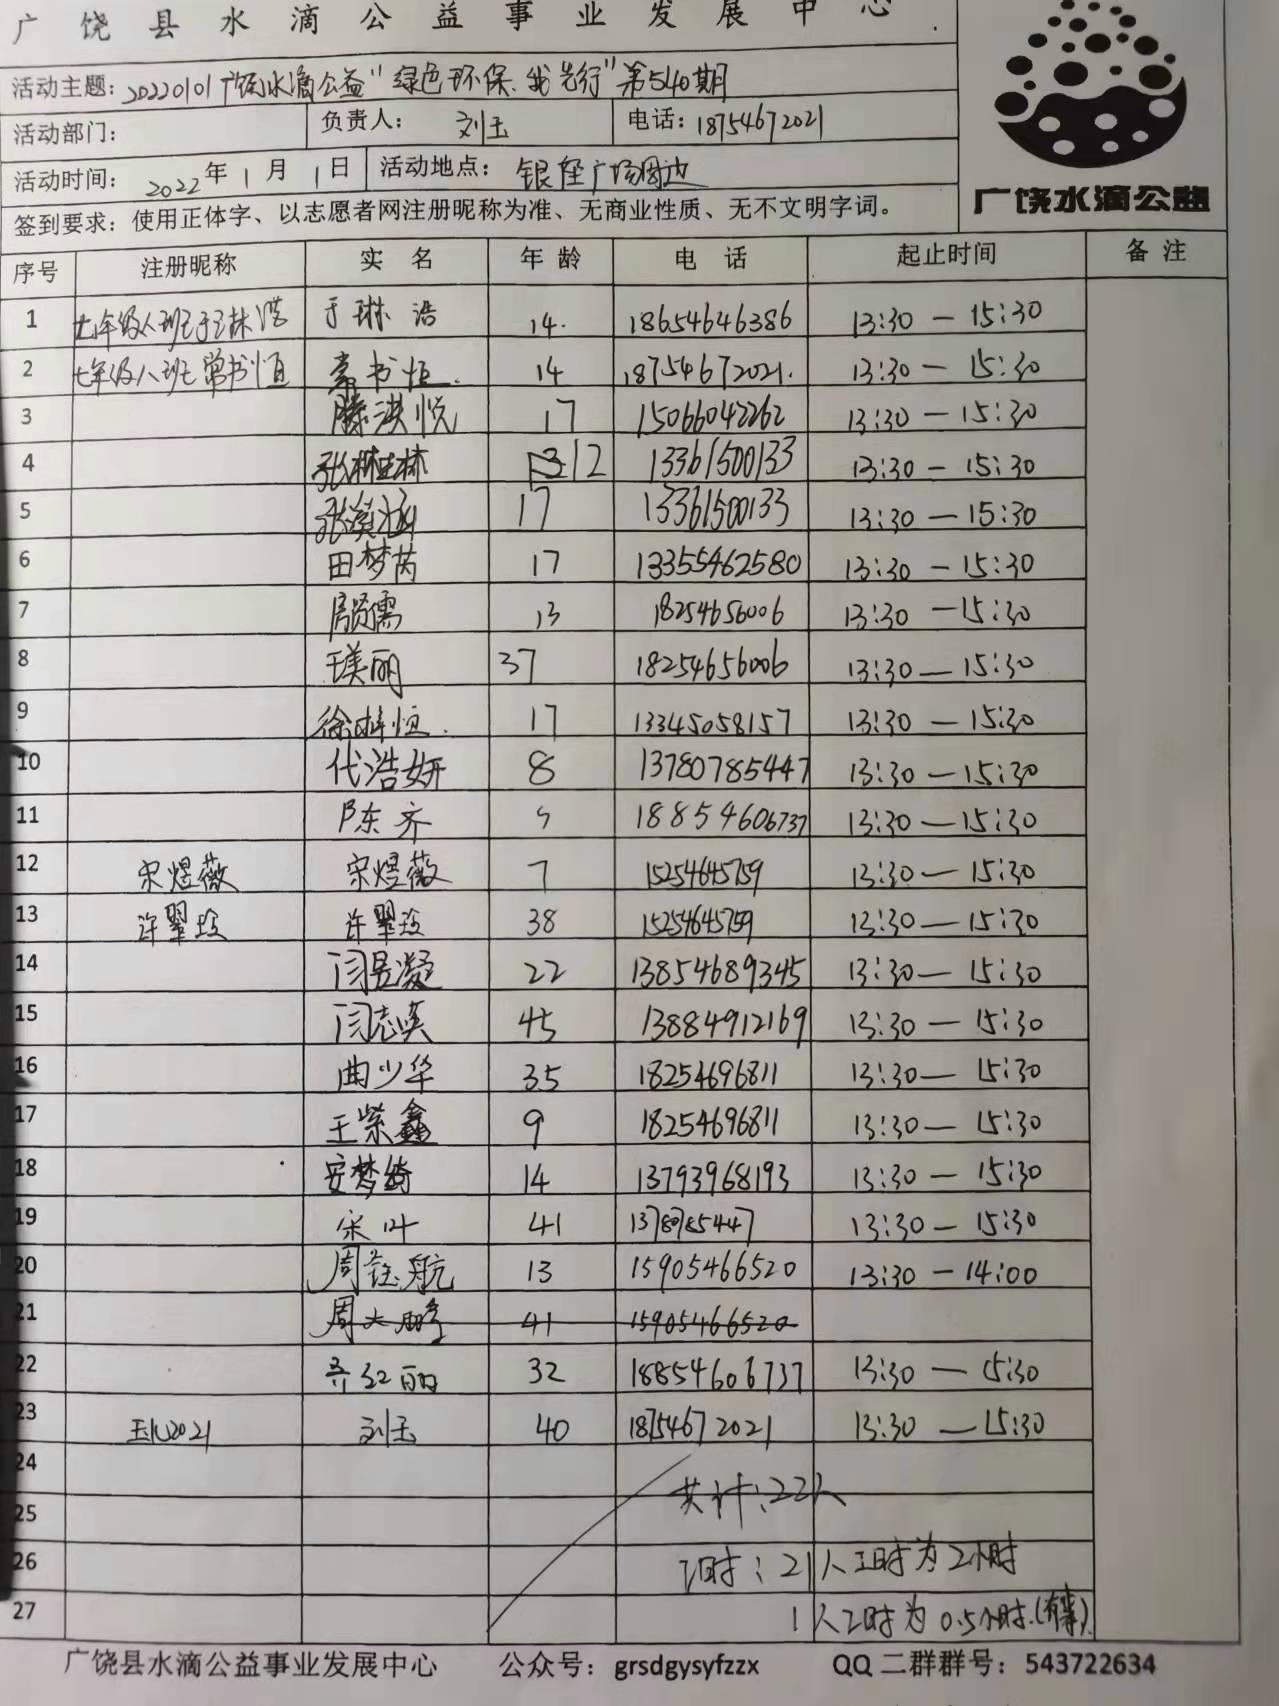 广饶县水滴公益事业发展中心
活动主题: 20220101广饶水滴公益“绿色环保、我先行”第540期
活动部门: 负责人: 刘玉 电话: 18754672021
活动时间: 2022年1月1日 活动地点: 银座广场周边
签到要求: 使用正体字、以志愿者网注册昵称为准、无商业性质、无不文明字词。
广饶水滴公益
序号 注册昵称 实 名 年 龄 电 话 起止时间 备 注
1 七年级八班于琳浩 于琳浩 14 18654646386 13:30 — 15:30
2 七年级八班常书恒 常书恒 14 18754672021 13:30 — 15:30
3 滕洪悦 17 15066042262 13:30 — 15:30
4 12 13361500133 13:30 — 15:30
5 17 13361500133 13:30 — 15:30
6 田梦芮 17 13355462580 13:30 — 15:30
7 13 18254656006 13:30 — 15:30
8 王美丽 37 18254656006 13:30 — 15:30
9 徐梓恒 17 13345058157 13:30 — 15:30
10 代浩妍 8 13780785447 13:30 — 15:30
11 陈齐 18854606737 13:30 — 15:30
12 宋煜薇 宋煜薇 7 15254645759 13:30 — 15:30
13 许翠玲 许翠玲 38 15254645759 13:30 — 15:30
14 闫昱凝 22 13854689345 13:30 — 15:30
15 闫志英 45 13884912169 13:30 — 15:30
16 曲少华 35 18254696811 13:30 — 15:30
17 王紫鑫 9 18254696811 13:30 — 15:30
18 安梦绮 14 13793968193 13:30 — 15:30
19 宋叶 41 13780785447 13:30 — 15:30
20 周钰航 13 15905466520 13:30 — 14:00
21 周大鹏 41 15905466520
22 齐红丽 32 18854606737 13:30 — 15:30
23 玉儿2021 刘玉 40 18754672021 13:30 — 15:30
24
共计:22人
25
26 工时:21人工时为2小时
27 1人工时为0.5小时.(有事)
广饶县水滴公益事业发展中心 公众号: grsdgysyfzzx QQ二群群号: 543722634